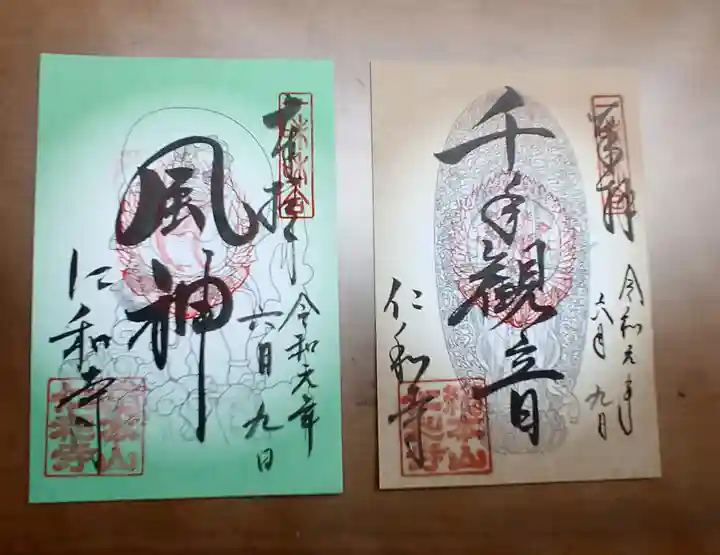 奉拝
風神
仁和寺
令和元年
六月九日
奉拝
千手観音
仁和寺
令和元年
六月九日